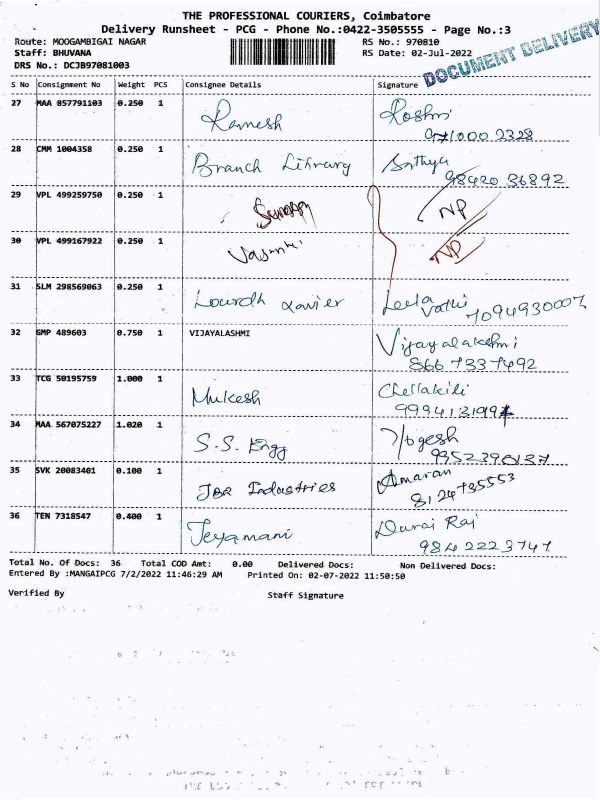 THE PROFESSIONAL COURIERS, Coimbatore
Delivery Runsheet - PCG - Phone No.:0422-3505555 - Page No.:3
Route: MOOGAMBIGAI NAGAR RS No.: 970810
Staff: BHUVANA RS Date: 02-Jul-2022
DRS No.: DCJB97081003
DOCUMENT DELIVERY
S No Consignment No Weight PCS Consignee Details Signature
27 MAA 857791103 0.250 1 Ramesh Roshni
971000 2328
28 CMM 1004358 0.250 1 Branch Library Sathya
98420 36892
29 VPL 499259750 0.250 1 NP
30 VPL 499167922 0.250 1 NP
31 SLM 298569063 0.250 1 Lourdh xavier Leela
Vathi 7094930007
32 GMP 489603 0.750 1 VIJAYALASHMI Vijayalakshmi
8667337492
33 TCG 50195759 1.000 1 Mukesh Chellakili
34 MAA 567075227 1.020 1 S.S. Engg Yogesh
35 SVK 20083401 0.100 1 JBR Industries Amaran
8124735553
36 TEN 7318547 0.400 1 Jeyamani Durai Raj
9842223747
Total No. Of Docs: 36 Total COD Amt: 0.00 Delivered Docs: Non Delivered Docs:
Entered By :MANGAIPCG 7/2/2022 11:46:29 AM Printed On: 02-07-2022 11:50:50
Verified By Staff Signature